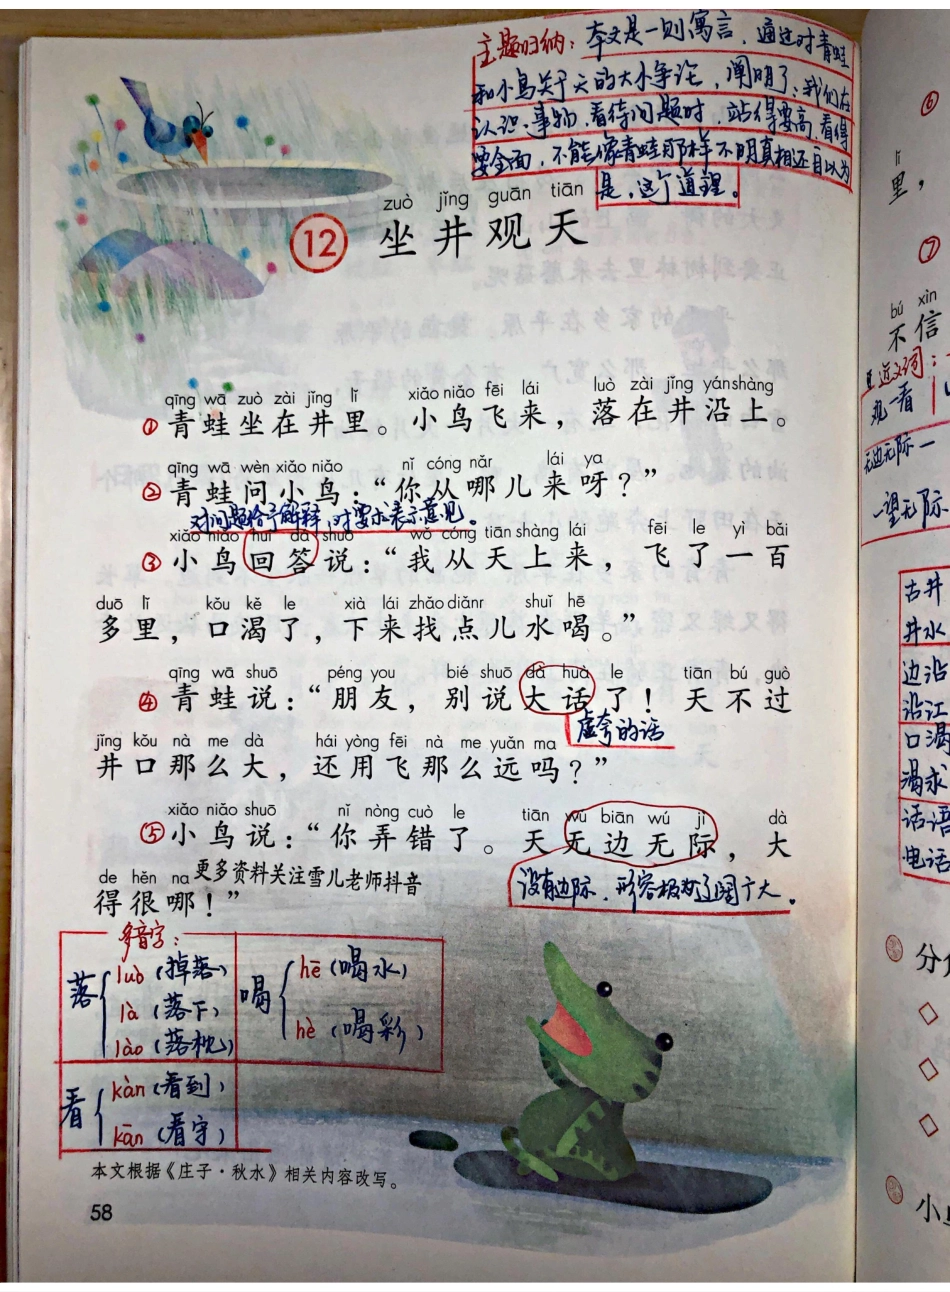 主题归纳：本文是一则寓言，通过对青蛙
和小鸟关于天的大小争论，阐明了：我们在
认识事物，看待问题时，站得要高，看得
要全面，不能像青蛙那样不明真相还自以为
是，这个道理。
zuò jǐng guān tiān
12 坐井观天
qīng wā zuò zài jǐng lǐ xiǎo niǎo fēi lái luò zài jǐng yán shàng
①青蛙坐在井里。小鸟飞来，落在井沿上。
qīng wā wèn xiǎo niǎo nǐ cóng nǎr lái ya
②青蛙问小鸟：“你从哪儿来呀？”
对问题给予解释，对要求表示意见。
xiǎo niǎo huí dá shuō wǒ cóng tiān shàng lái fēi le yì bǎi
③小鸟回答说：“我从天上来，飞了一百
duō lǐ kǒu kě le xià lái zhǎo diǎnr shuǐ hē
多里，口渴了，下来找点儿水喝。”
qīng wā shuō péng you bié shuō dà huà le tiān bú guò
④青蛙说：“朋友，别说大话了！天不过
虚夸的话
jǐng kǒu nà me dà hái yòng fēi nà me yuǎn ma
井口那么大，还用飞那么远吗？”
xiǎo niǎo shuō nǐ nòng cuò le tiān wú biān wú jì dà
⑤小鸟说：“你弄错了。天无边无际，大
de hěn na
得很哪！”
更多资料关注雪儿老师抖音
没有边际，形容极为辽阔广大。
多音字：
落
luò（掉落）
là（落下）
lào（落枕）
喝
hē（喝水）
hè（喝彩）
看
kàn（看到）
kān（看守）
本文根据《庄子·秋水》相关内容改写。
58
⑥
lǐ
里，
⑦
bú xìn
不信
近义词：
观—看
无边无际—
一望无际
古井
井水
边沿
沿江
口渴
渴求
话语
电话
分
小